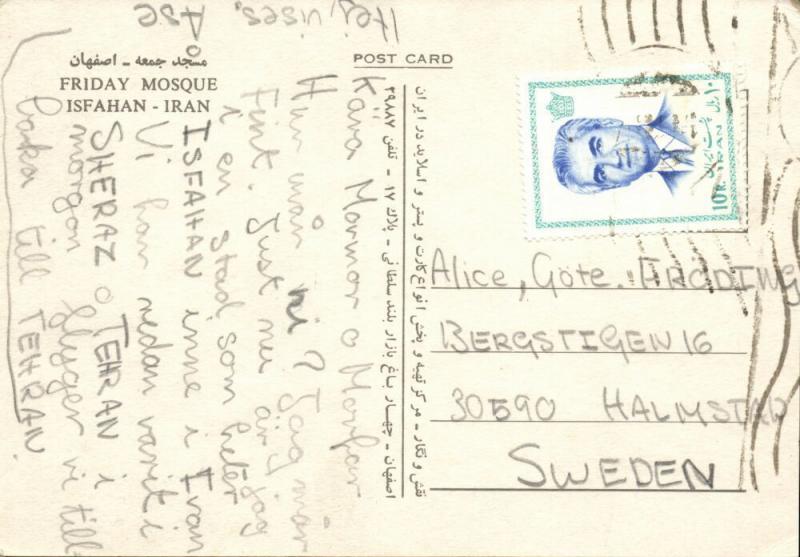 مسجد جمعه - اصفهان
FRIDAY MOSQUE
ISFAHAN - IRAN
POST CARD
Kära Mormor o Morfar
Hur mår ni? Jag mår
fint. Just nu är jag
i en stad som heter
ISFAHAN inne i Iran
Vi har redan varit i
SHERAZ o TEHRAN i
morgon flyger vi till-
baka till TEHRAN.
Hej, vises.
Åse
نقش و نگار - مرکز تهیه و پخش انواع کارت و پستر و اسلاید در ایران
اصفهان - چهار باغ بازار بلند سلطانی - پلاک ۱۷ - تلفن ۳۹۸۸۷
۱۰ ریال
پست ایران
10 R. IRAN
Alice, Göte. FRÖDING
BERGSTIGEN 16
30590 HALMSTAD
SWEDEN